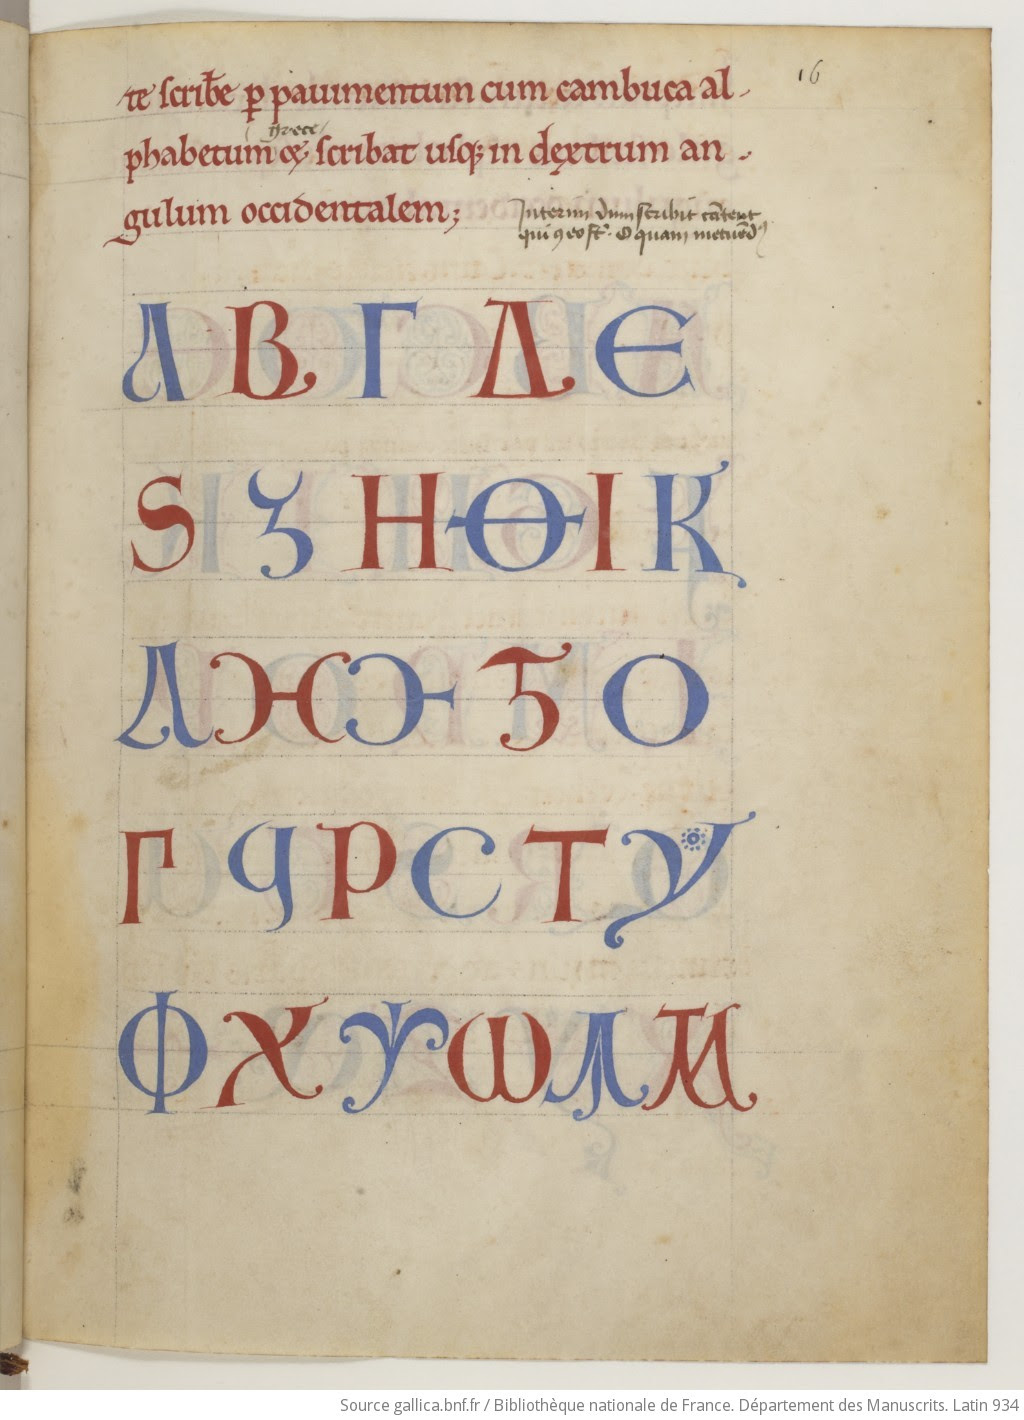 te scribe̅ ꝑ pauimentum cum cambuca al-
16
grece
phabetum scribat usq; in dęxtrum an-
gulum occidentalem;
Interim dum scribit ca̅tent
O quam metuend
Α Β Γ Δ Є
S Ʒ Η Θ Ι Κ
Λ Ο
Γ Ϥ Ρ C Τ Υ
Φ Χ Ψ ω
Source gallica.bnf.fr / Bibliothèque nationale de France. Département des Manuscrits. Latin 934